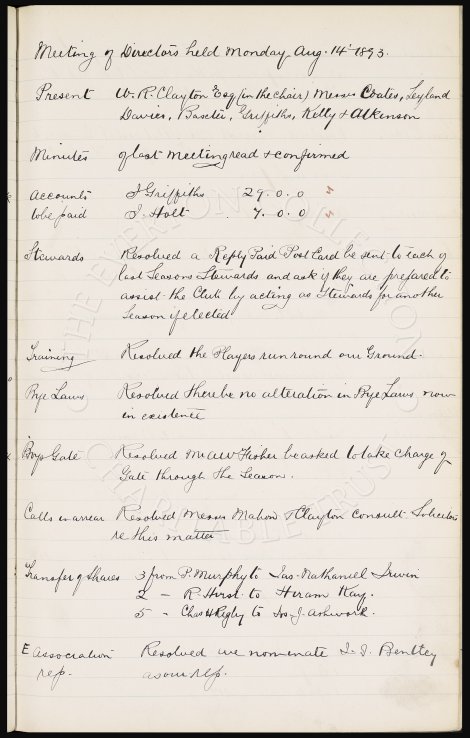 Meeting of Directors held Monday Aug. 14th 1893.
Present W. R. Clayton Esq (in the Chair) Messrs Coates, Leyland
Davies, Baxter, Griffiths, Kelly & Atkinson
Minutes of last meeting read & confirmed
Accounts J Griffiths 29.0.0
to be paid J. Holt 7.0.0
Stewards Resolved a Reply Paid Post Card be sent to each of
last Seasons Stewards and ask if they are prepared to
assist the Club by acting as Stewards for another
Season if elected
Training Resolved the Players run round our Ground.
Bye Laws Resolved there be no alteration in Bye Laws now
in existence
Boys Gate Resolved Mr A W Fisher be asked to take charge of
Gate through the Season.
Calls in arrear Resolved Messrs Mahon & Clayton consult Solicitors
re this matter
Transfer of Shares 3 from P. Murphy to Jas. Nathaniel Irwin
2 - R. Hirst to Hiram Kay.
5 - Chas H Rigby to Jos. J. Ashworth.
E Association Resolved we nominate J. J. Bentley
rep. as our rep.
THE EVERTON COLLECTION
CHARITABLE TRUST